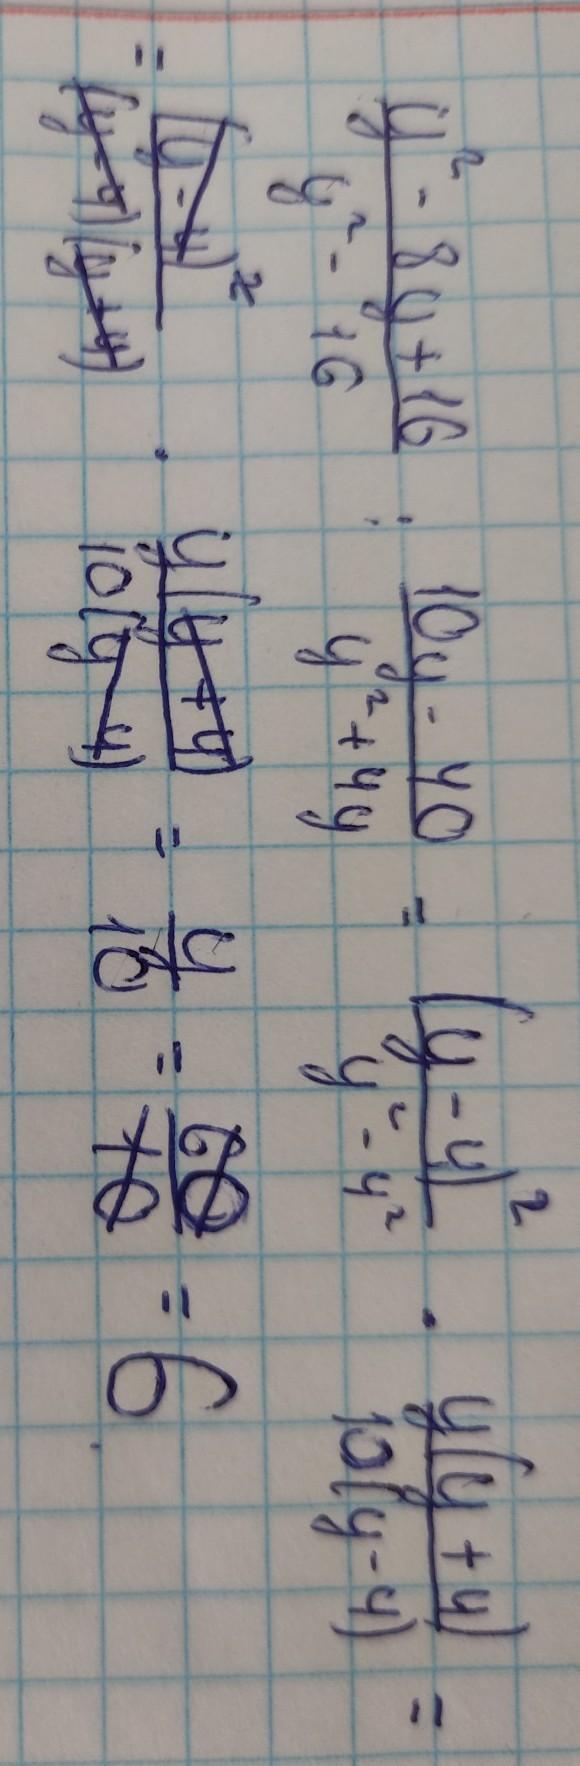 (y² - 8y + 16)/(y² - 16) : (10y - 40)/(y² + 4y) = (y - 4)²/(y² - 4²) · y(y + 4)/10(y - 4) =
= (y - 4)²/(y - 4)(y + 4) · y(y + 4)/10(y - 4) = y/10 = 60/10 = 6